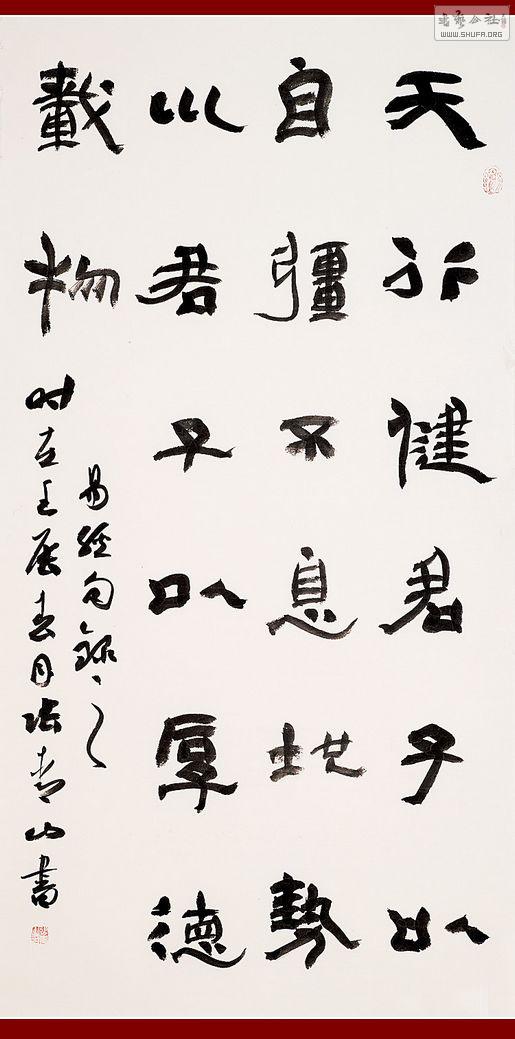 天行健君子以
自彊不息地勢
川君子以厚德
載物
易經句錄之
时在壬辰春月青山書
書藝公社
WWW.SHUFA.ORG